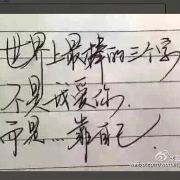 世界上最棒的三个字
不是我爱你.
而是...靠自己